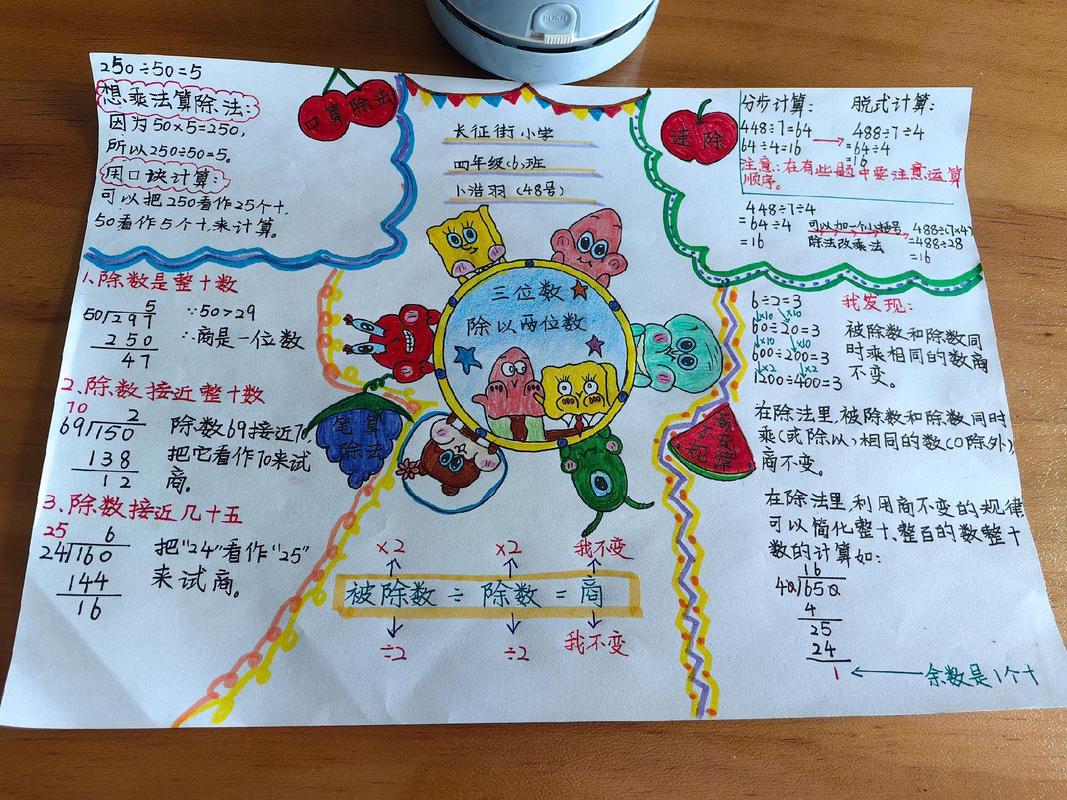 250÷50=5
想乘法算除法:
因为50×5=250,
所以250÷50=5。
用口诀计算:
可以把250看作25个十,
50看作5个十来计算。
口算除法
长征街小学
四年级(6)班
卜浩羽(48号)
连除
分步计算: 脱式计算:
448÷7=64 488÷7÷4
64÷4=16 =64÷4
=16
注意:在有些题中要注意运算
顺序。
448÷7÷4
=64÷4 可以加一个小括号 488÷(7×4)
=16 除法改乘法 =488÷28
=16
1、除数是整十数
5
50 297 ∵50>29
250 ∴商是一位数
47
2、除数接近整十数
70 2
69 150 除数69接近70
138 把它看作70来试
12 商。
3、除数接近几十五
25 6
24 160 把“24”看作“25”
144 来试商。
16
笔算
除法
三位数
除以两位数
×2 ×2 我不变
被除数 ÷ 除数 = 商
÷2 ÷2 我不变
商变
不
规律
6÷2=3
×10 ×10
60÷20=3
×10 ×10
600÷200=3
×2 ×2
1200÷400=3
我发现:
被除数和除数同
时乘相同的数商
不变。
在除法里,被除数和除数同时
乘(或除以)相同的数(0除外),
商不变。
在除法里,利用商不变的规律
可以简化整十、整百的数整十
数的计算如:
16
40 650
4
25
24
1 余数是1个十